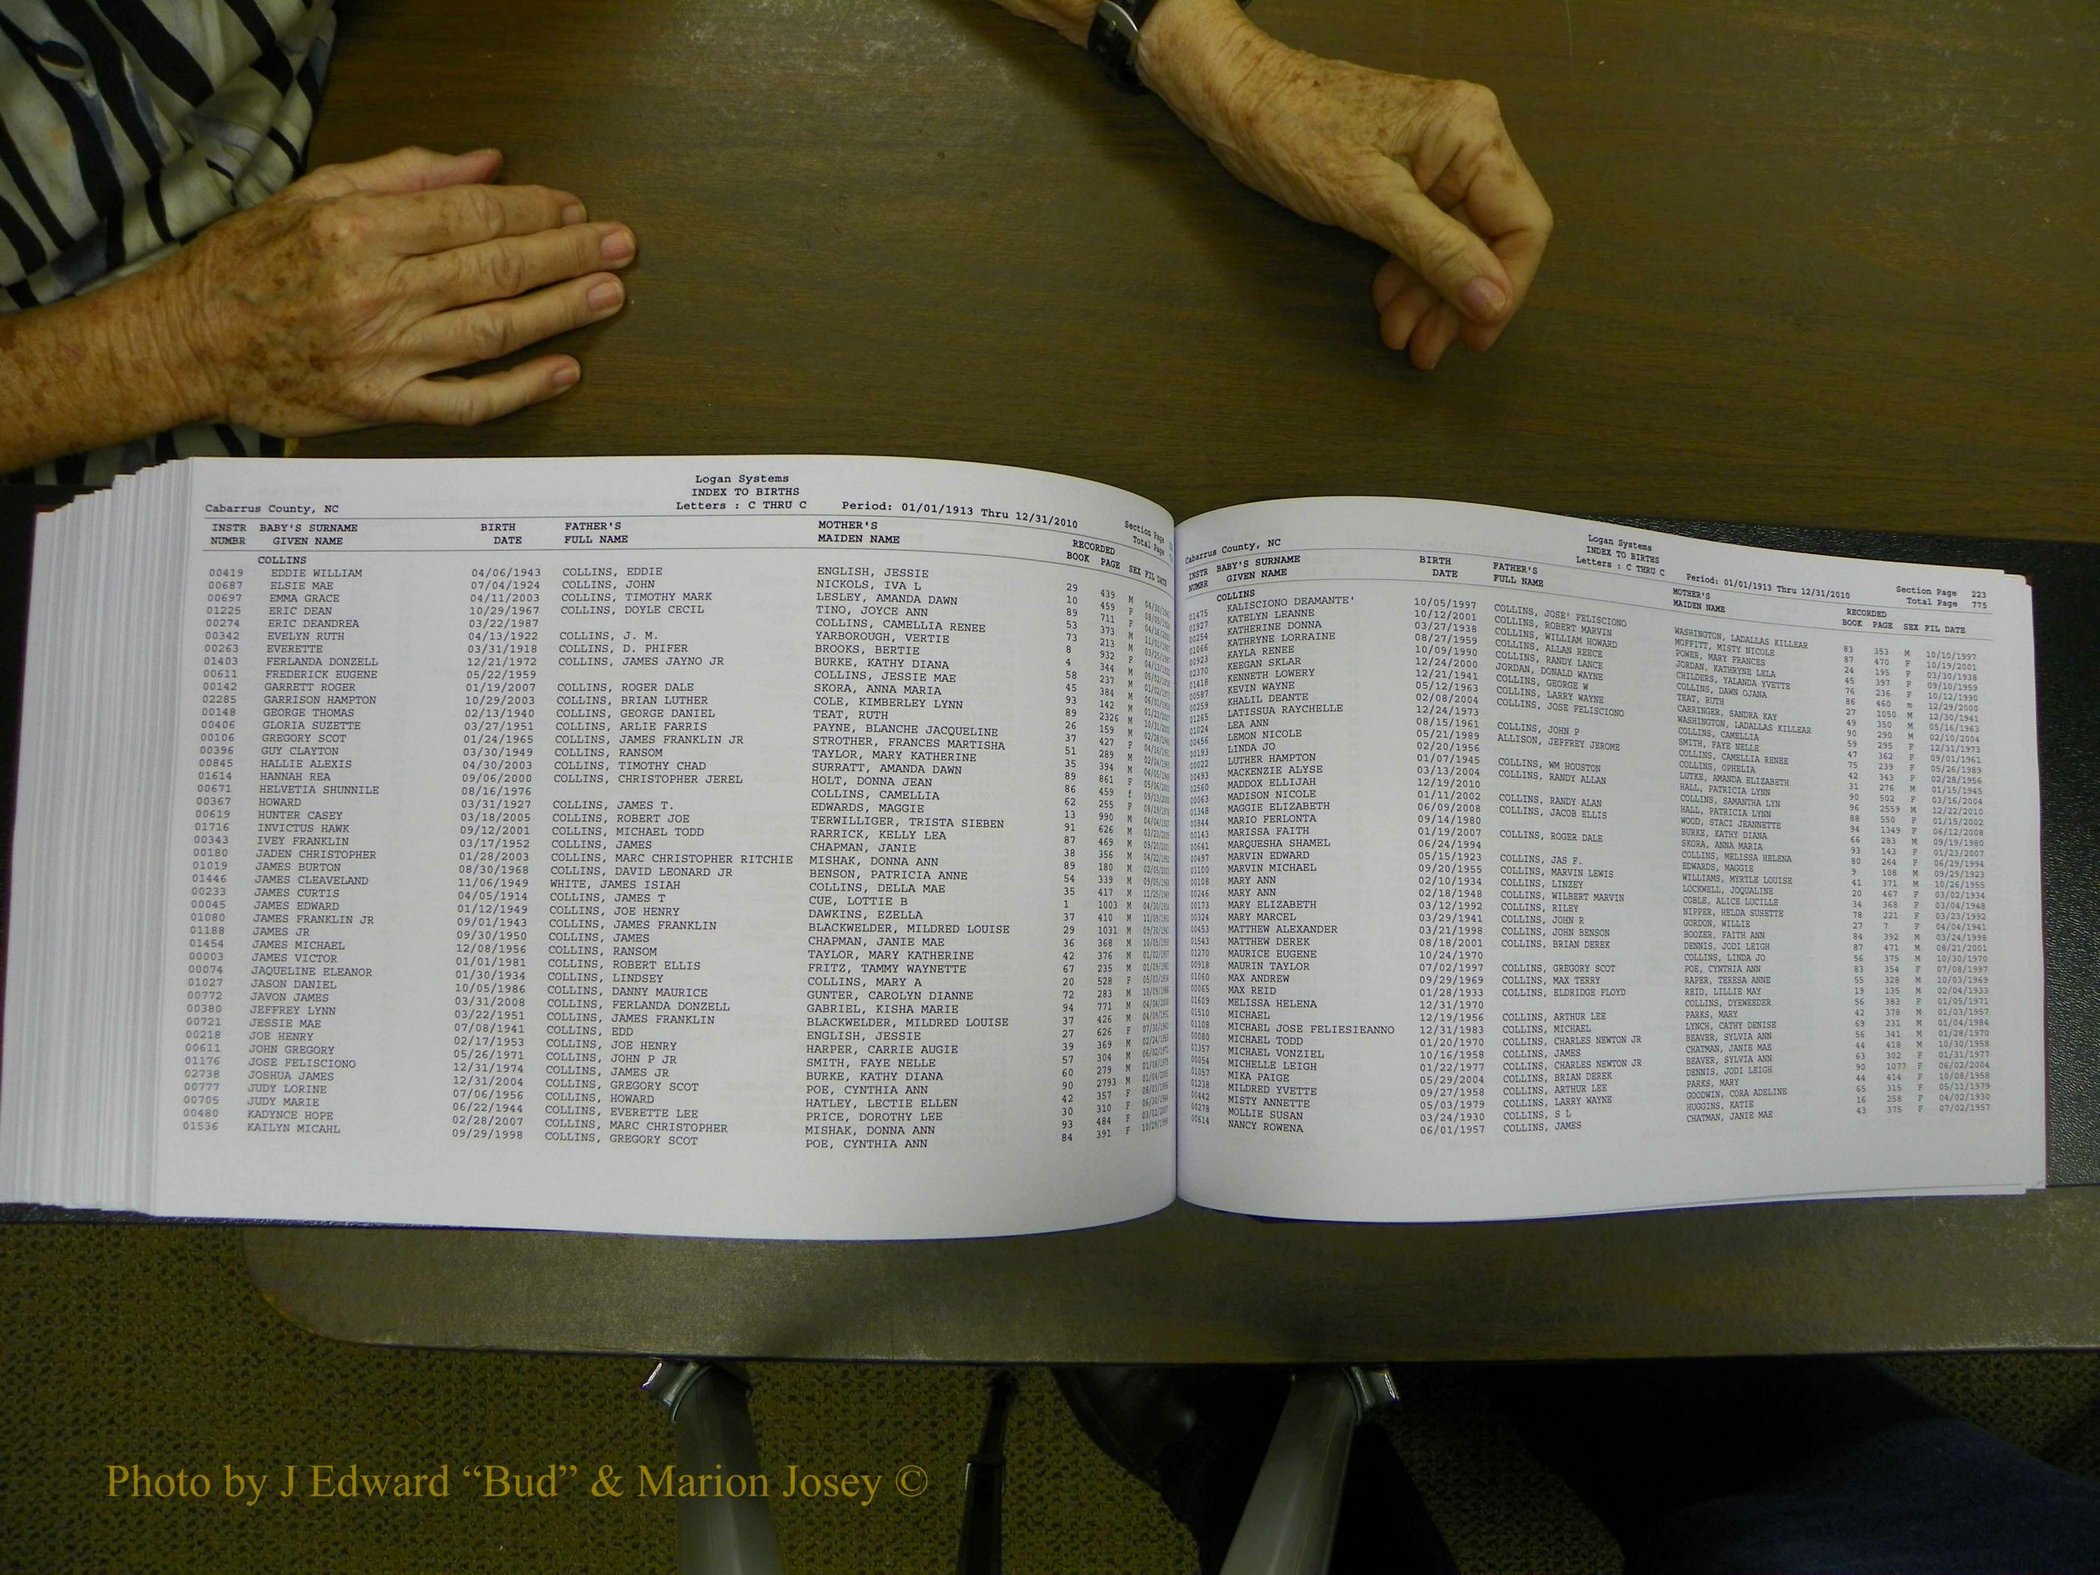 Logan Systems
INDEX TO BIRTHS
Cabarrus County, NC Letters : C THRU C Period: 01/01/1913 Thru 12/31/2010 Section Page
Total Page
INSTR BABY'S SURNAME BIRTH FATHER'S MOTHER'S RECORDED
NUMBR GIVEN NAME DATE FULL NAME MAIDEN NAME BOOK PAGE SEX FIL DATE
COLLINS
00419 EDDIE WILLIAM 04/06/1943 COLLINS, EDDIE ENGLISH, JESSIE 29 439 M
00687 ELSIE MAE 07/04/1924 COLLINS, JOHN NICKOLS, IVA L 10 459 F
00697 EMMA GRACE 04/11/2003 COLLINS, TIMOTHY MARK LESLEY, AMANDA DAWN 89 711 F
01225 ERIC DEAN 10/29/1967 COLLINS, DOYLE CECIL TINO, JOYCE ANN 53 373 M
00274 ERIC DEANDREA 03/22/1987 COLLINS, CAMELLIA RENEE 73 213 M
00342 EVELYN RUTH 04/13/1922 COLLINS, J. M. YARBOROUGH, VERTIE 8 932 F
00263 EVERETTE 03/31/1918 COLLINS, D. PHIFER BROOKS, BERTIE 4 344 M
01403 FERLANDA DONZELL 12/21/1972 COLLINS, JAMES JAYNO JR BURKE, KATHY DIANA 58 237 M
00611 FREDERICK EUGENE 05/22/1959 COLLINS, JESSIE MAE 45 384 M
00142 GARRETT ROGER 01/19/2007 COLLINS, ROGER DALE SKORA, ANNA MARIA 93 142 M
02285 GARRISON HAMPTON 10/29/2003 COLLINS, BRIAN LUTHER COLE, KIMBERLEY LYNN 89 2326 M
00148 GEORGE THOMAS 02/13/1940 COLLINS, GEORGE DANIEL TEAT, RUTH 26 159 M
00406 GLORIA SUZETTE 03/27/1951 COLLINS, ARLIE FARRIS PAYNE, BLANCHE JACQUELINE 37 427 F
00106 GREGORY SCOT 01/24/1965 COLLINS, JAMES FRANKLIN JR STROTHER, FRANCES MARTISHA 51 289 M
00396 GUY CLAYTON 03/30/1949 COLLINS, RANSOM TAYLOR, MARY KATHERINE 35 394 M
00845 HALLIE ALEXIS 04/30/2003 COLLINS, TIMOTHY CHAD SURRATT, AMANDA DAWN 89 861 F
01614 HANNAH REA 09/06/2000 COLLINS, CHRISTOPHER JEREL HOLT, DONNA JEAN 86 459 f
00671 HELVETIA SHUNNILE 08/16/1976 COLLINS, CAMELLIA 62 255 F
00367 HOWARD 03/31/1927 COLLINS, JAMES T. EDWARDS, MAGGIE 13 990 M
00619 HUNTER CASEY 03/18/2005 COLLINS, ROBERT JOE TERWILLIGER, TRISTA SIEBEN 91 626 M
01716 INVICTUS HAWK 09/12/2001 COLLINS, MICHAEL TODD RARRICK, KELLY LEA 87 469 M
00343 IVEY FRANKLIN 03/17/1952 COLLINS, JAMES CHAPMAN, JANIE 38 356 M
00180 JADEN CHRISTOPHER 01/28/2003 COLLINS, MARC CHRISTOPHER RITCHIE MISHAK, DONNA ANN 89 180 M
01019 JAMES BURTON 08/30/1968 COLLINS, DAVID LEONARD JR BENSON, PATRICIA ANNE 54 339 M
01446 JAMES CLEAVELAND 11/06/1949 WHITE, JAMES ISIAH COLLINS, DELLA MAE 35 417 M
00233 JAMES CURTIS 04/05/1914 COLLINS, JAMES T CUE, LOTTIE B 1 1003 M
00045 JAMES EDWARD 01/12/1949 COLLINS, JOE HENRY DAWKINS, EZELLA 37 410 M
01080 JAMES FRANKLIN JR 09/01/1943 COLLINS, JAMES FRANKLIN BLACKWELDER, MILDRED LOUISE 29 1031 M
01188 JAMES JR 09/30/1950 COLLINS, JAMES CHAPMAN, JANIE MAE 36 368 M
01454 JAMES MICHAEL 12/08/1956 COLLINS, RANSOM TAYLOR, MARY KATHERINE 42 376 M
00003 JAMES VICTOR 01/01/1981 COLLINS, ROBERT ELLIS FRITZ, TAMMY WAYNETTE 67 235 M
00074 JAQUELINE ELEANOR 01/30/1934 COLLINS, LINDSEY COLLINS, MARY A 20 528 F
01027 JASON DANIEL 10/05/1986 COLLINS, DANNY MAURICE GUNTER, CAROLYN DIANNE 72 283 M
00772 JAVON JAMES 03/31/2008 COLLINS, FERLANDA DONZELL GABRIEL, KISHA MARIE 94 771 M
00380 JEFFREY LYNN 03/22/1951 COLLINS, JAMES FRANKLIN BLACKWELDER, MILDRED LOUISE 37 426 M
00721 JESSIE MAE 07/08/1941 COLLINS, EDD ENGLISH, JESSIE 27 626 F
00218 JOE HENRY 02/17/1953 COLLINS, JOE HENRY HARPER, CARRIE AUGIE 39 369 M
00611 JOHN GREGORY 05/26/1971 COLLINS, JOHN P JR SMITH, FAYE NELLE 57 304 M
01176 JOSE FELISCIONO 12/31/1974 COLLINS, JAMES JR BURKE, KATHY DIANA 60 279 M
02738 JOSHUA JAMES 12/31/2004 COLLINS, GREGORY SCOT POE, CYNTHIA ANN 90 2793 M
00777 JUDY LORINE 07/06/1956 COLLINS, HOWARD HATLEY, LECTIE ELLEN 42 357 F
00705 JUDY MARIE 06/22/1944 COLLINS, EVERETTE LEE PRICE, DOROTHY LEE 30 310 F
00480 KADYNCE HOPE 02/28/2007 COLLINS, MARC CHRISTOPHER MISHAK, DONNA ANN 93 484 F
01536 KAILYN MICAHL 09/29/1998 COLLINS, GREGORY SCOT POE, CYNTHIA ANN 84 391 F
Logan Systems
INDEX TO BIRTHS
Cabarrus County, NC Letters : C THRU C Period: 01/01/1913 Thru 12/31/2010 Section Page 223
Total Page 775
INSTR BABY'S SURNAME BIRTH FATHER'S MOTHER'S RECORDED
NUMBR GIVEN NAME DATE FULL NAME MAIDEN NAME BOOK PAGE SEX FIL DATE
COLLINS
01475 KALISCIONO DEAMANTE' 10/05/1997 COLLINS, JOSE' FELISCIONO WASHINGTON, LADALLAS KILLEAR 83 353 M 10/10/1997
01927 KATELYN LEANNE 10/12/2001 COLLINS, ROBERT MARVIN MOFFITT, MISTY NICOLE 87 470 F 10/19/2001
00254 KATHERINE DONNA 03/27/1938 COLLINS, WILLIAM HOWARD POWER, MARY FRANCES 24 195 F 03/30/1938
01066 KATHRYNE LORRAINE 08/27/1959 COLLINS, ALLAN REECE JORDAN, KATHRYNE LELA 45 397 F 09/10/1959
00923 KAYLA RENEE 10/09/1990 COLLINS, RANDY LANCE CHILDERS, YALANDA YVETTE 76 236 F 10/12/1990
02370 KEEGAN SKLAR 12/24/2000 JORDAN, DONALD WAYNE COLLINS, DAWN OJANA 86 460 m 12/29/2000
01418 KENNETH LOWERY 12/21/1941 COLLINS, GEORGE W TEAT, RUTH 27 1050 M 12/30/1941
00587 KEVIN WAYNE 05/12/1963 COLLINS, LARRY WAYNE CARRINGER, SANDRA KAY 49 350 M 05/16/1963
00259 KHALIL DEANTE 02/08/2004 COLLINS, JOSE FELISCIONO WASHINGTON, LADALLAS KILLEAR 90 290 M 02/10/2004
01265 LATISSUA RAYCHELLE 12/24/1973 COLLINS, CAMELLIA 59 295 F 12/31/1973
01024 LEA ANN 08/15/1961 COLLINS, JOHN P SMITH, FAYE NELLE 47 362 F 09/01/1961
00456 LEMON NICOLE 05/21/1989 ALLISON, JEFFREY JEROME COLLINS, CAMELLIA RENEE 75 239 F 05/26/1989
00193 LINDA JO 02/20/1956 COLLINS, OPHELIA 42 343 F 02/28/1956
00022 LUTHER HAMPTON 01/07/1945 COLLINS, WM HOUSTON LUTKE, AMANDA ELIZABETH 31 276 M 01/15/1945
00493 MACKENZIE ALYSE 03/13/2004 COLLINS, RANDY ALLAN HALL, PATRICIA LYNN 90 502 F 03/16/2004
02560 MADDOX ELIJAH 12/19/2010 COLLINS, SAMANTHA LYN 96 2559 M 12/22/2010
00063 MADISON NICOLE 01/11/2002 COLLINS, RANDY ALAN HALL, PATRICIA LYNN 88 550 F 01/15/2002
01348 MAGGIE ELIZABETH 06/09/2008 COLLINS, JACOB ELLIS WOOD, STACI JEANNETTE 94 1349 F 06/12/2008
00844 MARIO FERLONTA 09/14/1980 BURKE, KATHY DIANA 66 283 M 09/19/1980
00143 MARISSA FAITH 01/19/2007 COLLINS, ROGER DALE SKORA, ANNA MARIA 93 143 F 01/23/2007
00641 MARQUESHA SHAMEL 06/24/1994 COLLINS, MELISSA HELENA 80 264 F 06/29/1994
00497 MARVIN EDWARD 05/15/1923 COLLINS, JAS F. EDWARDS, MAGGIE 9 108 M 09/29/1923
01100 MARVIN MICHAEL 09/20/1955 COLLINS, MARVIN LEWIS WILLIAMS, MYRTLE LOUISE 41 371 M 10/26/1955
00108 MARY ANN 02/10/1934 COLLINS, LINZEY LOCKWELL, JOQUALINE 20 467 F 03/02/1934
00246 MARY ANN 02/18/1948 COLLINS, WILBERT MARVIN COBLE, ALICE LUCILLE 34 368 F 03/04/1948
00173 MARY ELIZABETH 03/12/1992 COLLINS, RILEY NIPPER, HELDA SUSETTE 78 221 F 03/23/1992
00324 MARY MARCEL 03/29/1941 COLLINS, JOHN R GORDON, WILLIE 27 7 F 04/04/1941
00453 MATTHEW ALEXANDER 03/21/1998 COLLINS, JOHN BENSON BOOZER, FAITH ANN 84 392 M 03/24/1998
01543 MATTHEW DEREK 08/18/2001 COLLINS, BRIAN DEREK DENNIS, JODI LEIGH 87 471 M 08/21/2001
01270 MAURICE EUGENE 10/24/1970 COLLINS, LINDA JO 56 375 M 10/30/1970
00918 MAURIN TAYLOR 07/02/1997 COLLINS, GREGORY SCOT POE, CYNTHIA ANN 83 354 F 07/08/1997
01060 MAX ANDREW 09/29/1969 COLLINS, MAX TERRY RAPER, TERESA ANNE 55 328 M 10/03/1969
00065 MAX REID 01/28/1933 COLLINS, ELDRIDGE FLOYD REID, LILLIE MAY 19 135 M 02/04/1933
01609 MELISSA HELENA 12/31/1970 COLLINS, DYEWEEDER 56 383 F 01/05/1971
01510 MICHAEL 12/19/1956 COLLINS, ARTHUR LEE PARKS, MARY 42 378 M 01/03/1957
01108 MICHAEL JOSE FELIESIEANNO 12/31/1983 COLLINS, MICHAEL LYNCH, CATHY DENISE 69 231 M 01/04/1984
00080 MICHAEL TODD 01/20/1970 COLLINS, CHARLES NEWTON JR BEAVER, SYLVIA ANN 56 341 M 01/28/1970
01357 MICHAEL VONZIEL 10/16/1958 COLLINS, JAMES CHATMAN, JANIE MAE 44 418 M 10/30/1958
00054 MICHELLE LEIGH 01/22/1977 COLLINS, CHARLES NEWTON JR BEAVER, SYLVIA ANN 63 302 F 01/31/1977
01057 MIKA PAIGE 05/29/2004 COLLINS, BRIAN DEREK DENNIS, JODI LEIGH 90 1077 F 06/02/2004
01238 MILDRED YVETTE 09/27/1958 COLLINS, ARTHUR LEE PARKS, MARY 44 414 F 10/08/1958
00442 MISTY ANNETTE 05/03/1979 COLLINS, LARRY WAYNE GOODWIN, CORA ADELINE 65 315 F 05/11/1979
00278 MOLLIE SUSAN 03/24/1930 COLLINS, S L HUGGINS, KATIE 16 258 F 04/02/1930
00614 NANCY ROWENA 06/01/1957 COLLINS, JAMES CHATMAN, JANIE MAE 43 375 F 07/02/1957
Photo by J Edward “Bud” & Marion Josey ©